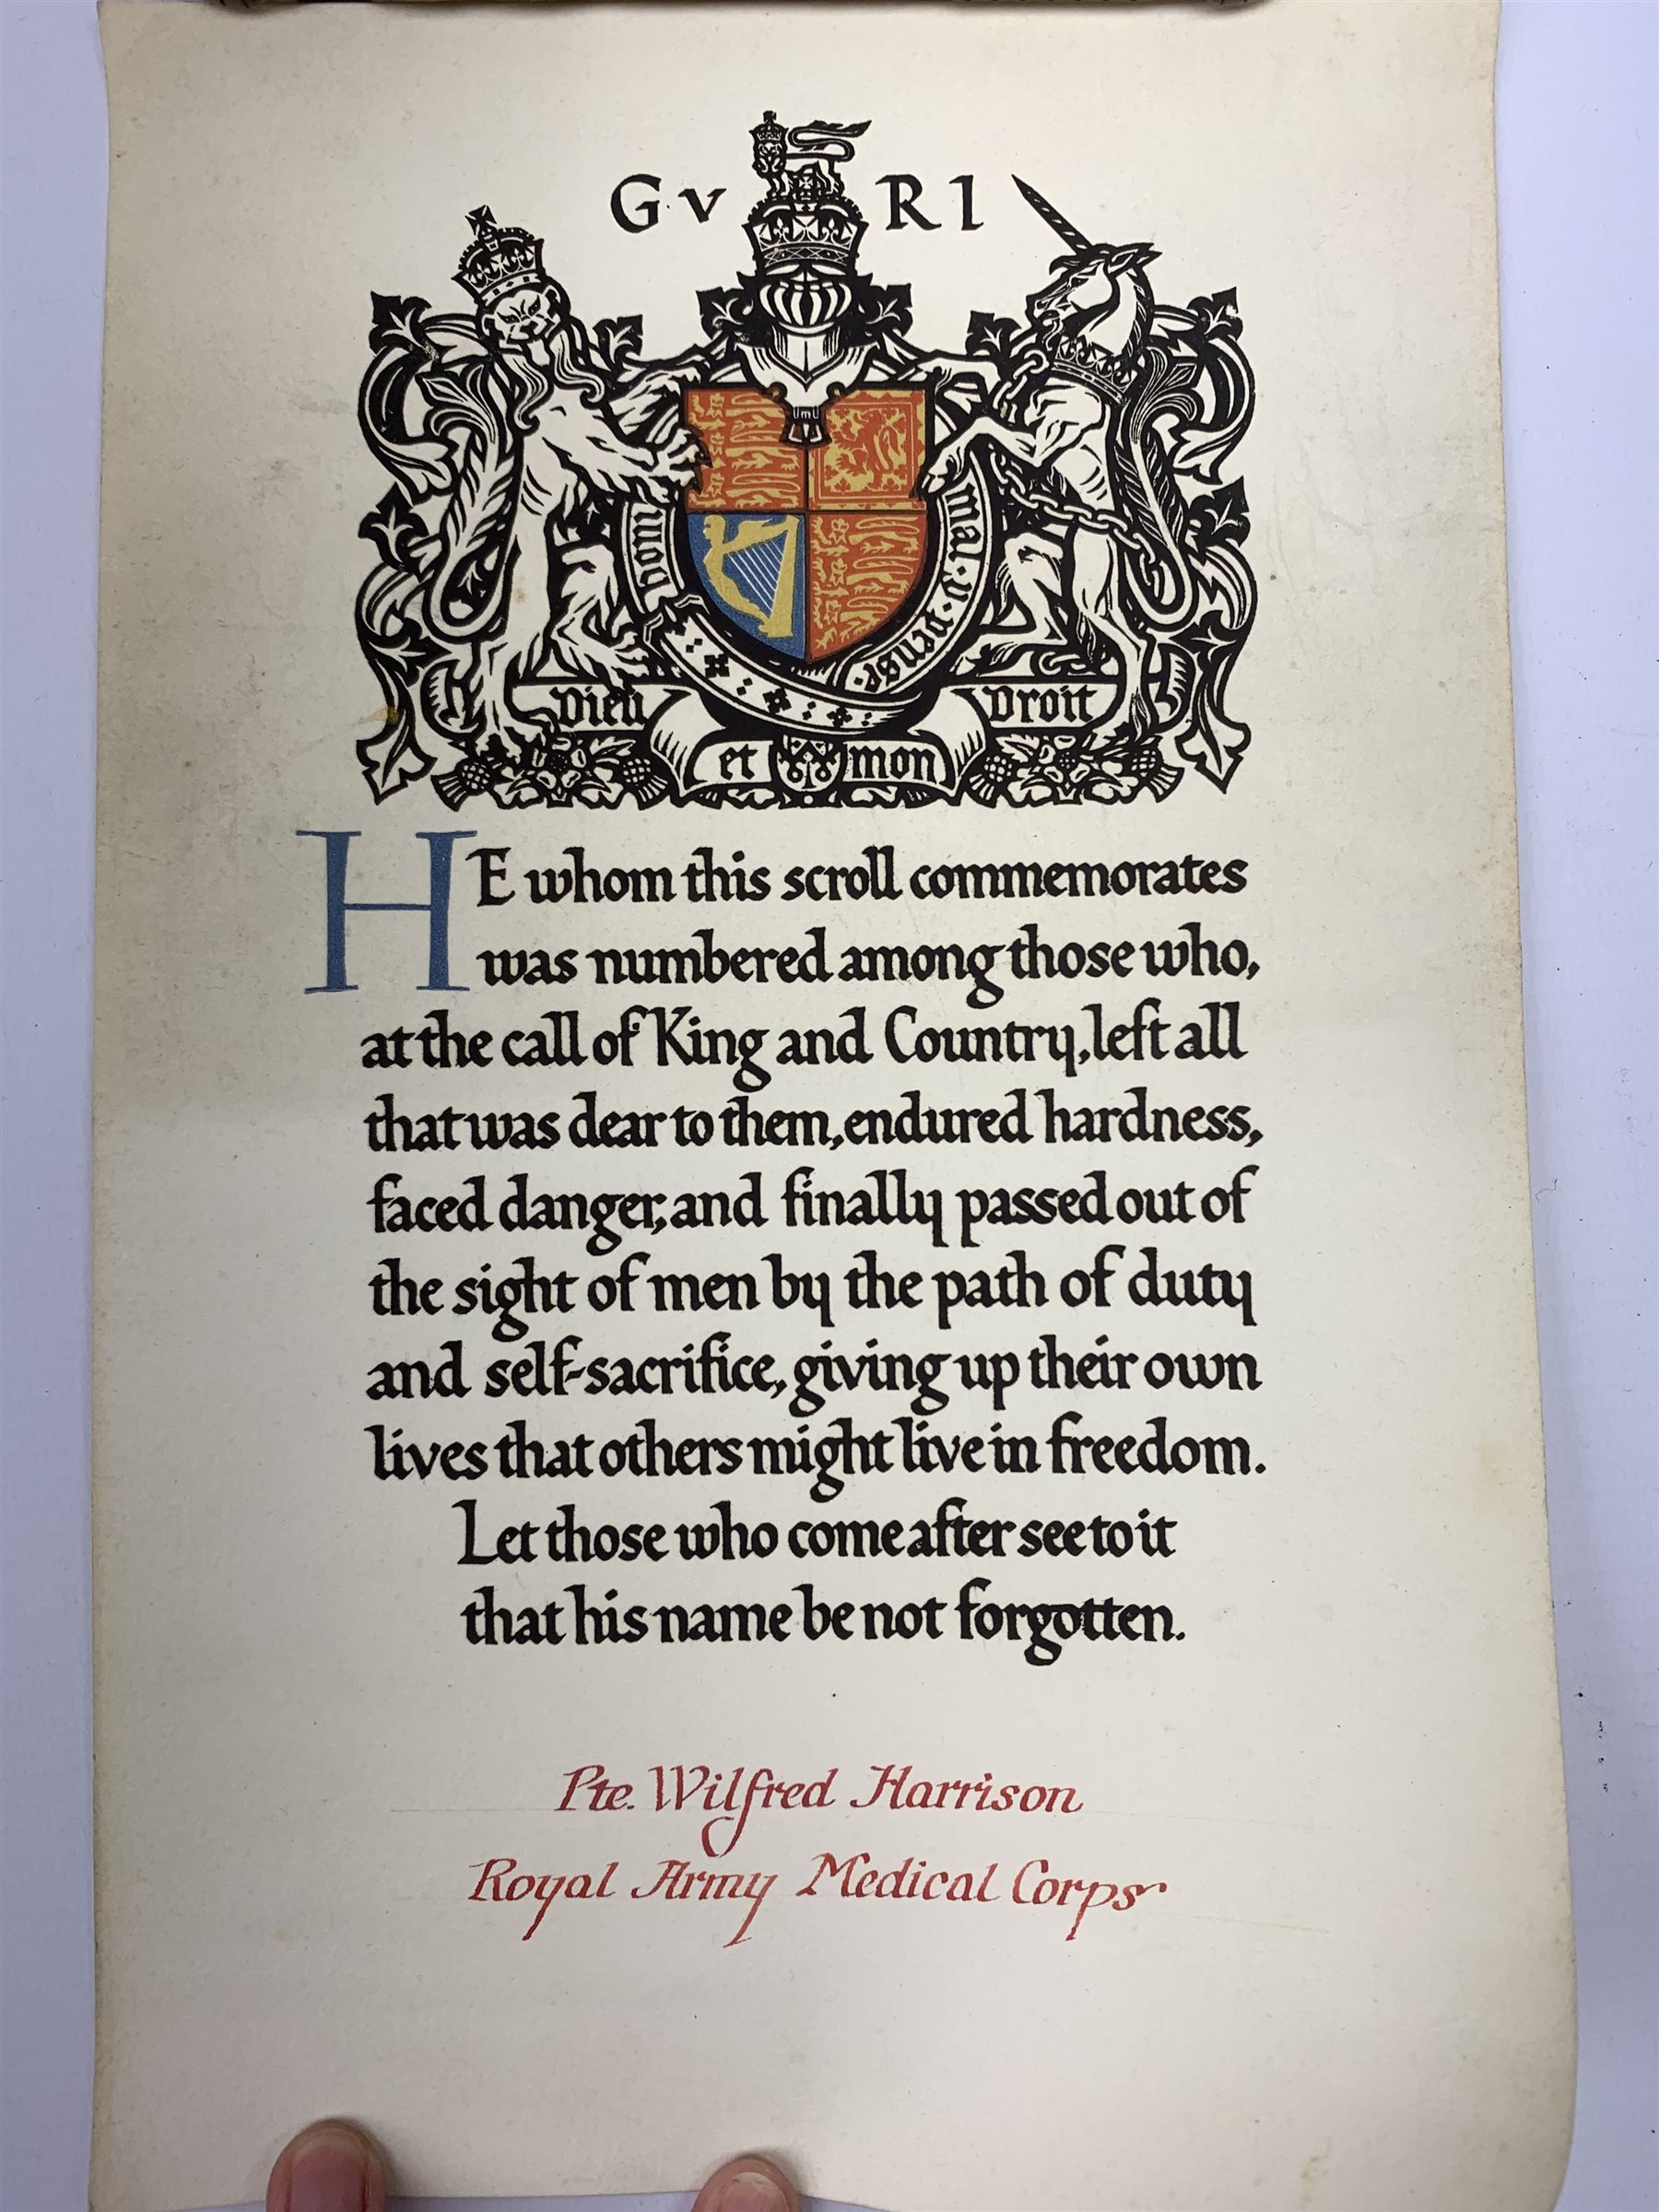 GV RI
honi mal·y·pense·
Dieu Droit
et mon
HE whom this scroll commemorates
was numbered among those who,
at the call of King and Country, left all
that was dear to them, endured hardness,
faced danger, and finally passed out of
the sight of men by the path of duty
and self-sacrifice, giving up their own
lives that others might live in freedom.
Let those who come after see to it
that his name be not forgotten.
Pte. Wilfred Harrison
Royal Army Medical Corps